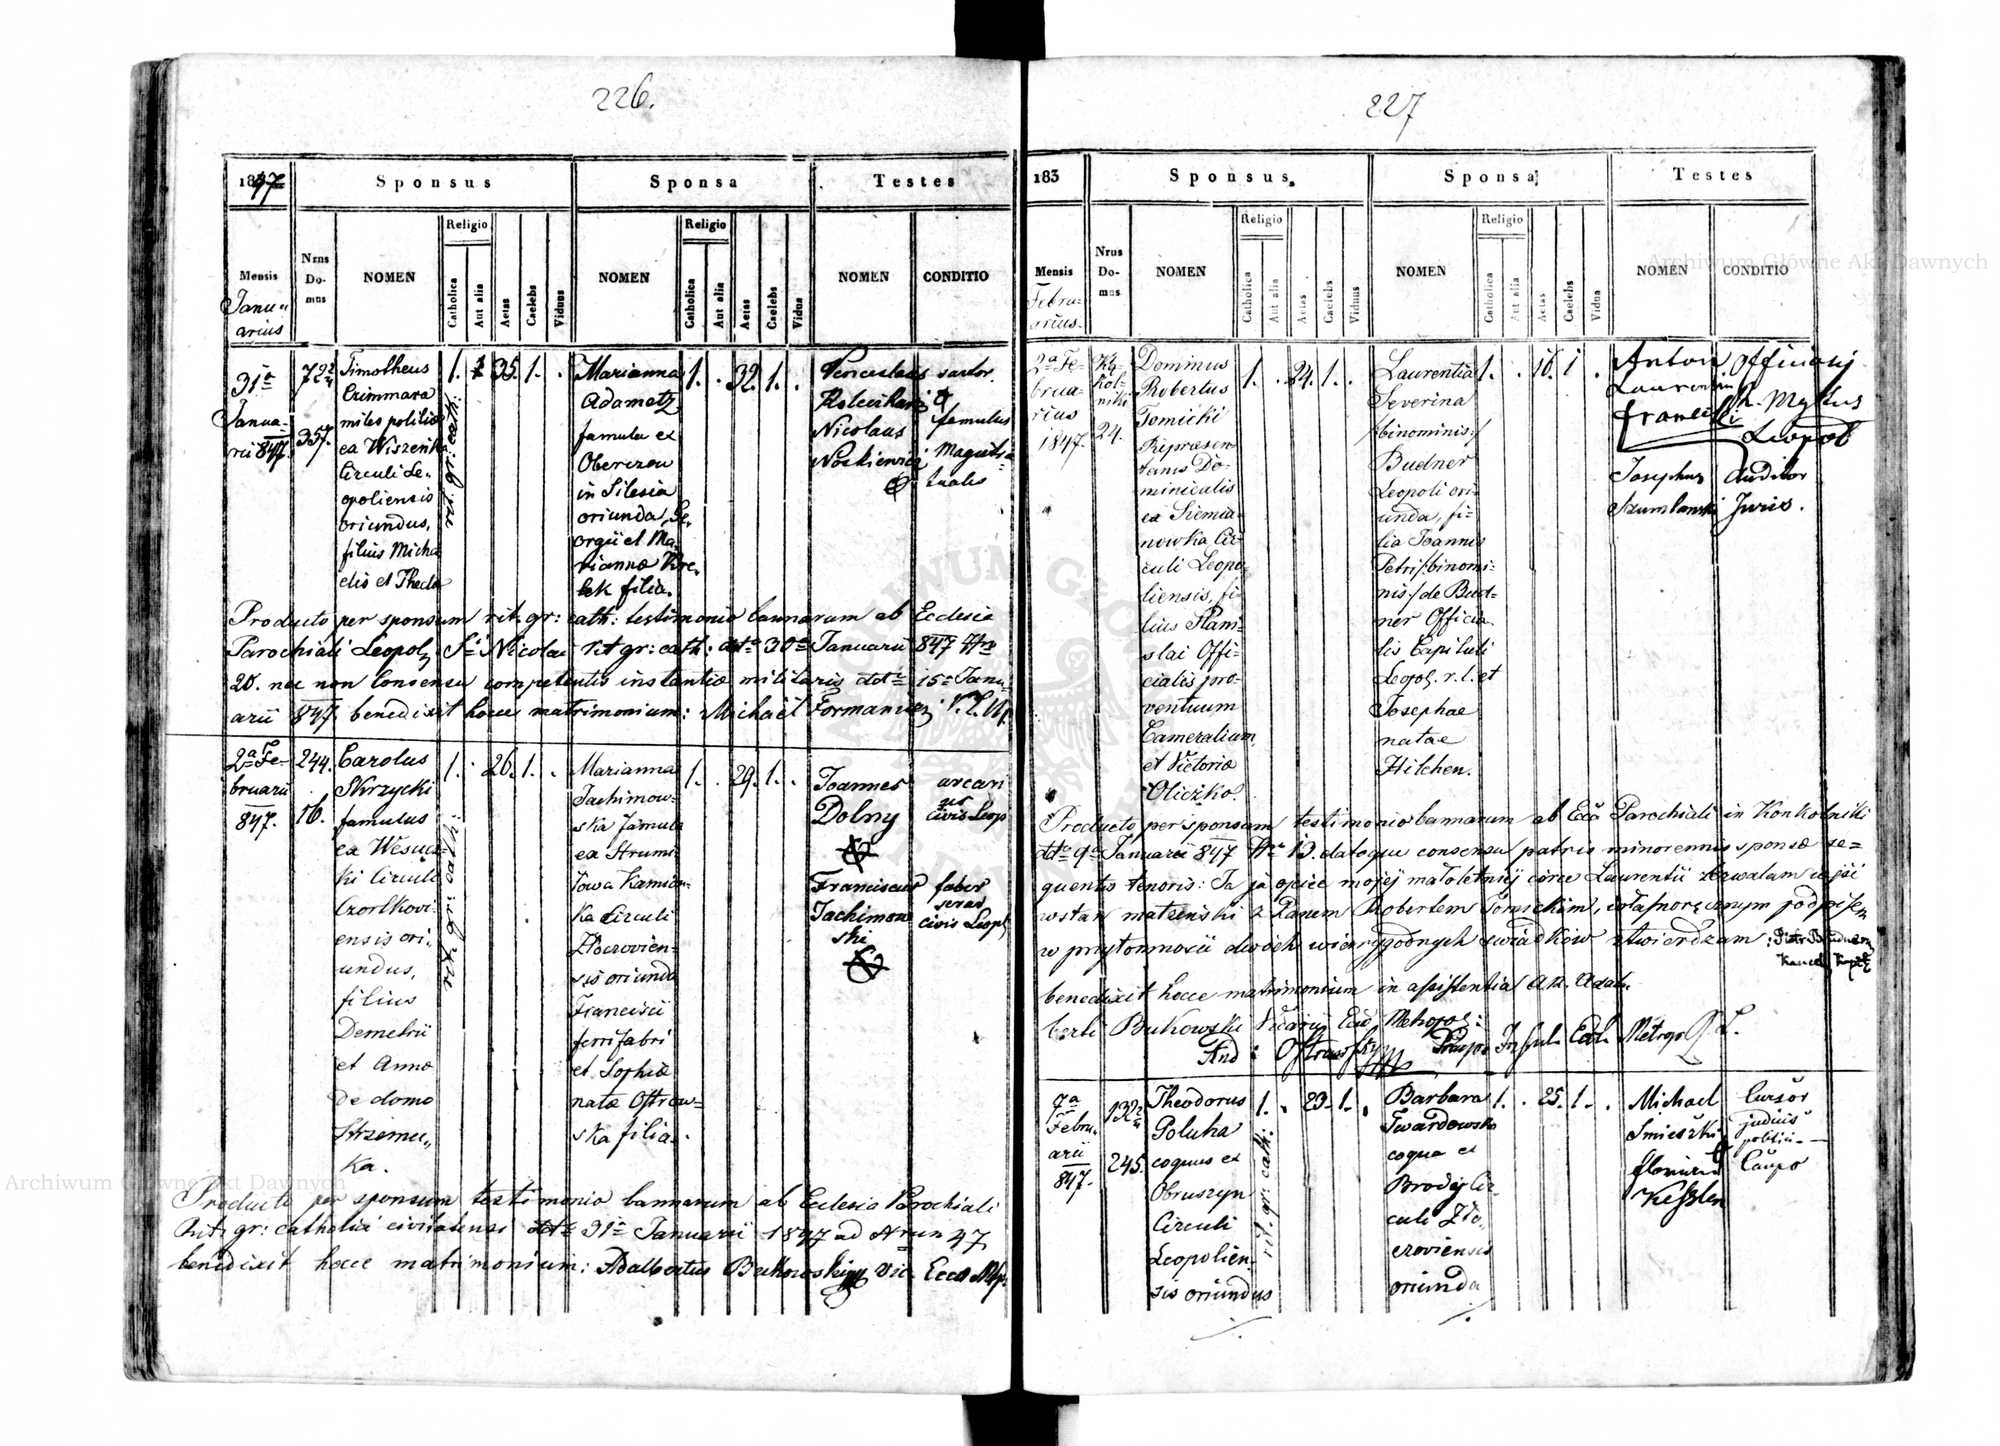 226.
1847
Sponsus
Sponsa
Testes
Mensis
Janu-
arius
Nrus
Do-
mus
NOMEN
Religio
Catholica
Aut alia
Aetas
Caelebs
Viduus
NOMEN
Religio
Catholica
Aut alia
Aetas
Caelebs
Vidua
NOMEN
CONDITIO
31a
Janua-
rii 847.
722/4
357.
Timotheus
miles politiae
ex Wiszenka
Circuli Le-
opoliensis
oriundus,
filius Micha
elis et Thecla
1.
35.
1.
Marianna
Adametz
famula ex
in Silesia
oriunda, Ge-
orgii et Ma-
rianna
filia.
1.
32.
1.
Venceslaus
sartor.
Nicolaus
famulus
Magistra-
tualis
Producto per sponsum rit. gr: cath: testimonio bannorum ab Ecclesia
Parochiali Leopol. Sti Nicolai rit gr: cath: ddto 30a Januarii 847 Nro
20. nec non Consensu competentis instantiae militaris ddto 15a Janu-
arii 847, benedixit hocce matrimonium: Michaël Formaniez
2a Fe-
bruarii
847.
244.
16.
Carolus
Skrzycki
famulus
ex
ki Circuli
Czortkovi-
ensis ori-
undus,
filius
Demetrii
et Anna
de domo
Strzemec-
ka.
1.
26.
1.
Marianna
Jachimow-
ska famula
ex Strumi-
lowa Kamion-
ka Circuli
Złoczovien-
sis oriunda
Francisci
ferrifabri
et Sophiae
natae Ostrow-
ska filia.
1.
29.
1.
Joannes
Dolny
arcari
us
civis Leop
Franciscus
Jachimow
ski
faber
serar
civis Leopl
Producto per sponsum testimonio bannorum ab Ecclesia Parochiali
Rit. gr: catholici civitatensi ddto 31a Januarii 1847 ad Nrum 47,
benedixit hocce matrimonium: Adalbertus Bukowski Vic. Eccl
227
183
Sponsus.
Sponsa
Testes
Mensis
Febru-
arius.
Nrus
Do-
mus
NOMEN
Religio
Catholica
Aut alia
Aetas
Caelebs
Viduus
NOMEN
Religio
Catholica
Aut alia
Aetas
Caelebs
Vidua
NOMEN
CONDITIO
2a Fe-
brua-
rius
1847.
Ką-
kol-
niki
24.
Dominus
Robertus
Tomicki
Repræsen
tans Do-
minicalis
ex Siemia-
nowka Cir-
culi Leopo-
liensis, fi-
lius Stani-
slai Offi-
cialis pro-
ventuum
Cameralium,
et Victoriæ
Oliczko.
1.
24.
1.
Laurentia
Severina
/:binominis:/
Budner
Leopoli ori-
unda, fi-
lia Joannis
Petri /:binomi-
nis:/ de Bud-
ner Officia-
lis Capituli
Leopol. r. l. et
Josephae
natae
Hilchen.
1.
16.
1.
Anton
Josephus
Szumlanski
Auditor
Juris.
Producto per sponsum testimonio bannorum ab Eccla Parochiali in Konkolniki
ddto 9a Januarii 847 Nro 13. datoque consensu patris minorennis sponsæ se-
quentis tenoris: Ja jako ojciec mojej małoletniej córce Laurentii zezwalam wejść
w stan małżeński z Panem Robertem Tomickim, co własnoręcznym podpisem
w przytomności dwóch wiarygodnych świadków stwierdzam:
benedixit hocce matrimonium in assistentia
berti Bukowski Vicarii Eccl Metropol:
Eccl. Metrop
9a
Febru-
arii
847.
132 2/4
245.
Theodorus
Poluha
coquus ex
Obroszyn
Circuli
Leopolien-
sis oriundus
1.
rit. gr: cath:
23.
1.
Barbara
Twardowska
coqua ex
Brody Cir-
culi Zło-
czoviensis
oriunda
1.
25.
1.
Michael
Smieszki
Cursor
judicii
politic.
Florian
Kessler
Caupo
Archiwum Główne Akt Dawnych
Archiwum Główne Akt Dawnych